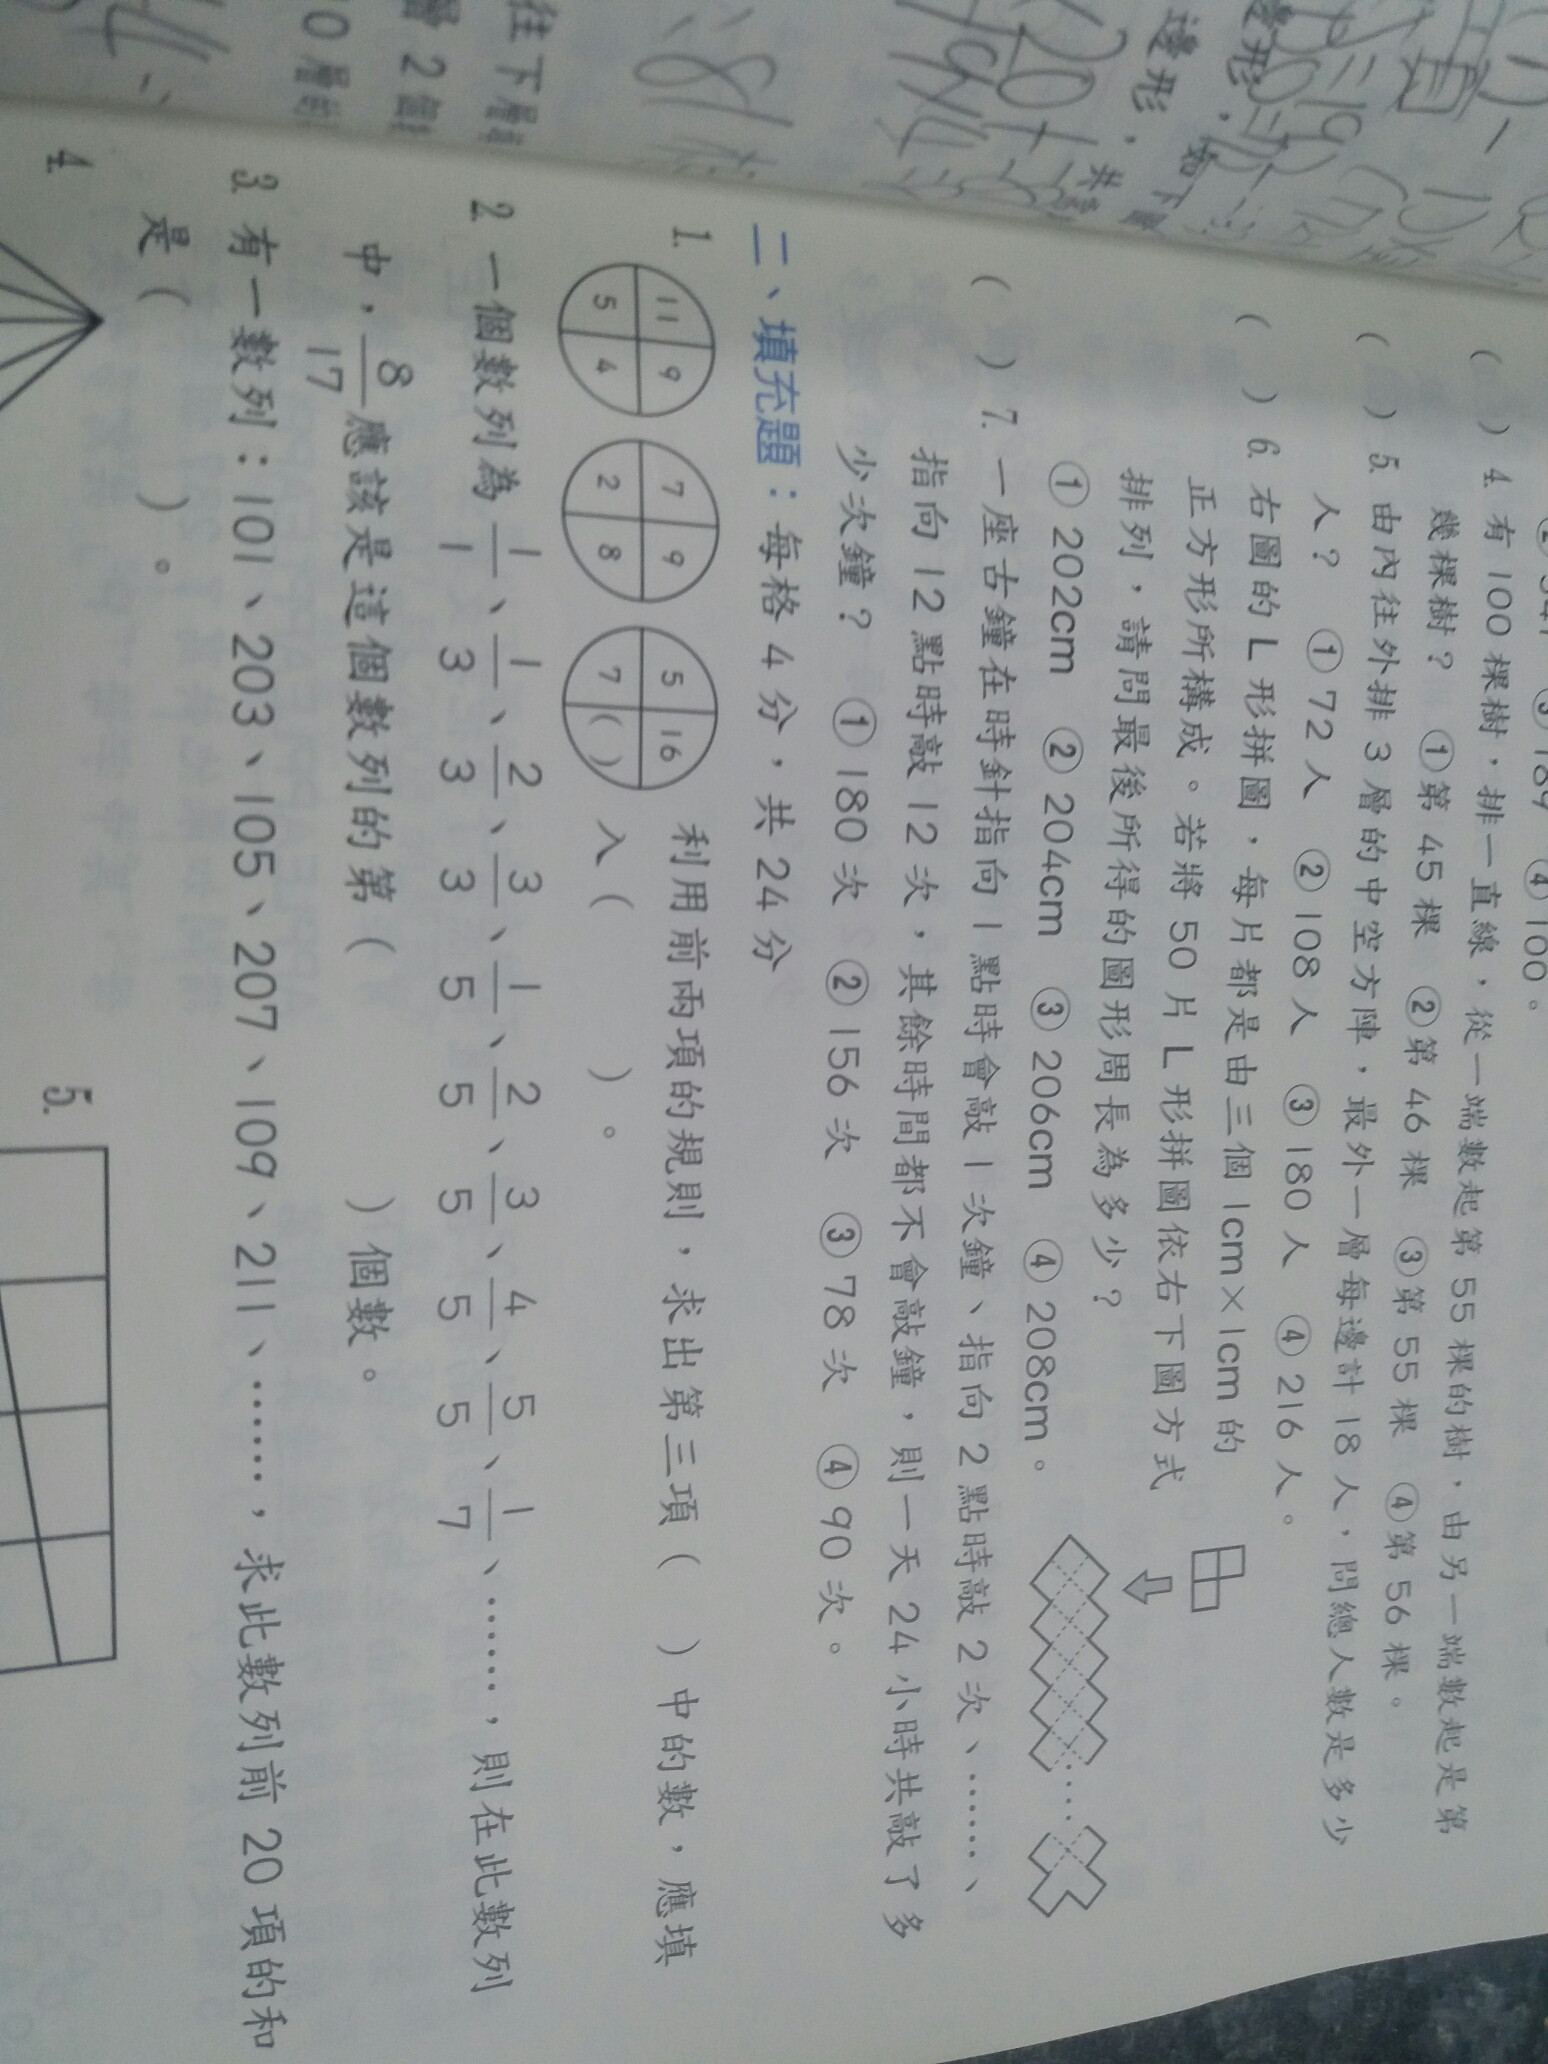 ③189 ④100。
( ) 4. 有 100 棵樹，排一直線，從一端數起第 55 棵的樹，由另一端數起是第
幾棵樹？ ①第 45 棵 ②第 46 棵 ③第 55 棵 ④第 56 棵。
( ) 5. 由內往外排 3 層的中空方陣，最外一層每邊計 18 人，問總人數是多少
人？ ①72 人 ②108 人 ③180 人 ④216 人。
( ) 6. 右圖的 L 形拼圖，每片都是由三個 1cm×1cm 的
正方形所構成。若將 50 片 L 形拼圖依右下圖方式
排列，請問最後所得的圖形周長為多少？
①202cm ②204cm ③206cm ④208cm。
( ) 7. 一座古鐘在時針指向 1 點時會敲 1 次鐘、指向 2 點時敲 2 次、……、
指向 12 點時敲 12 次，其餘時間都不會敲鐘，則一天 24 小時共敲了多
少次鐘？ ①180 次 ②156 次 ③78 次 ④90 次。
二、填充題：每格 4 分，共 24 分
1. 11 9 5 4 7 9 2 8 5 16 7 ( ) 利用前兩項的規則，求出第三項( )中的數，應填
入( )。
2. 一個數列為 1/1、1/3、2/3、3/3、1/5、2/5、3/5、4/5、5/5、1/7、……，則在此數列
中，8/17 應該是這個數列的第( )個數。
3. 有一數列：101、203、105、207、109、211、……，求此數列前 20 項的和
是( )。
4. 5.
邊形，
邊形，
往下層
層 2 個
10 層